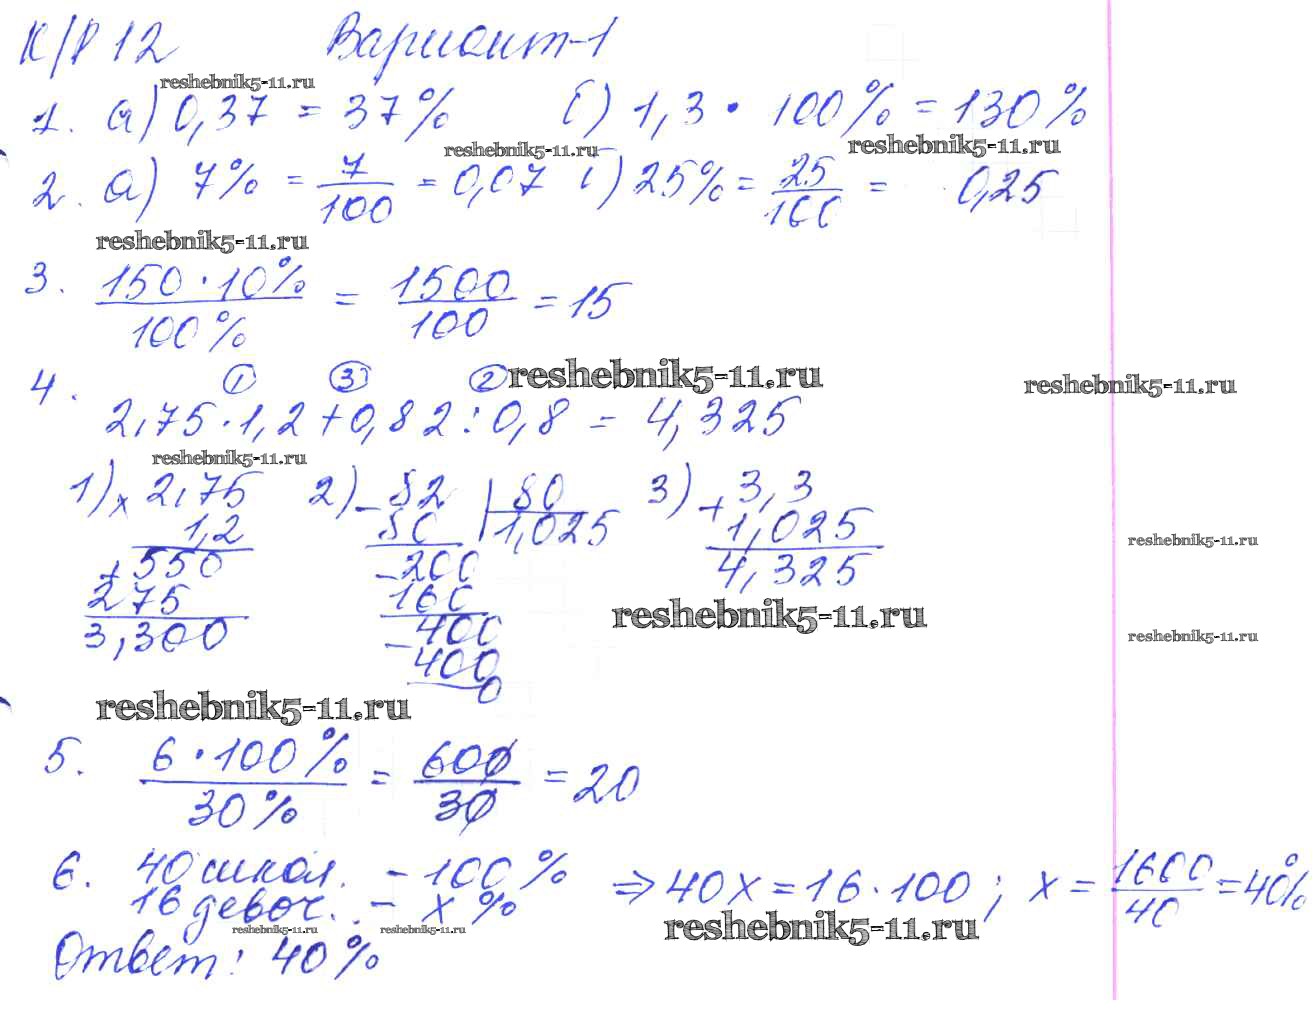 К/Р 12 Вариант-1
reshebnik5-11.ru
1. а) 0,37 = 37% б) 1,3 · 100% = 130%
reshebnik5-11.ru reshebnik5-11.ru
2. а) 7% = 7/100 = 0,07 б) 25% = 25/100 = 0,25
reshebnik5-11.ru
3. 150 · 10% / 100% = 1500/100 = 15
4. ① ③ ② reshebnik5-11.ru reshebnik5-11.ru
2,75 · 1,2 + 0,82 : 0,8 = 4,325
reshebnik5-11.ru
1) × 2,75 2) - 82 | 80 3) + 3,3
1,2 80 1,025 1,025
reshebnik5-11.ru
+ 550 - 200 4,325
275 160
reshebnik5-11.ru
3,300 - 400
reshebnik5-11.ru
400
0
reshebnik5-11.ru
5. 6 · 100% / 30% = 600/30 = 20
6. 40 школ. - 100% ⇒ 40x = 16 · 100; x = 1600/40 = 40%
16 девоч. - x %
reshebnik5-11.ru reshebnik5-11.ru reshebnik5-11.ru
Ответ: 40%